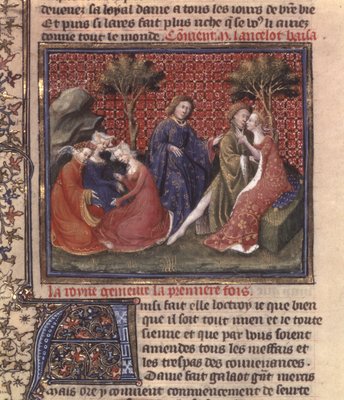 devenez sa loyal dame a tous les iours de vr̃e vie
Et puis si lares fait plus riche q̃ se vo⁹ li auiez
donne tout le monde. Cõment M. lancelot baisa
la royne genieure la premiere fois.
Ainsi fait elle loctroy ie que bien
que il soit tout mien et ie toute
sienne et que par vous soient
amendes tous les meffais et
les trespas des conuenances.
Dame fait galaot grãt mercis
Mais ore y conuient commencement de seurte